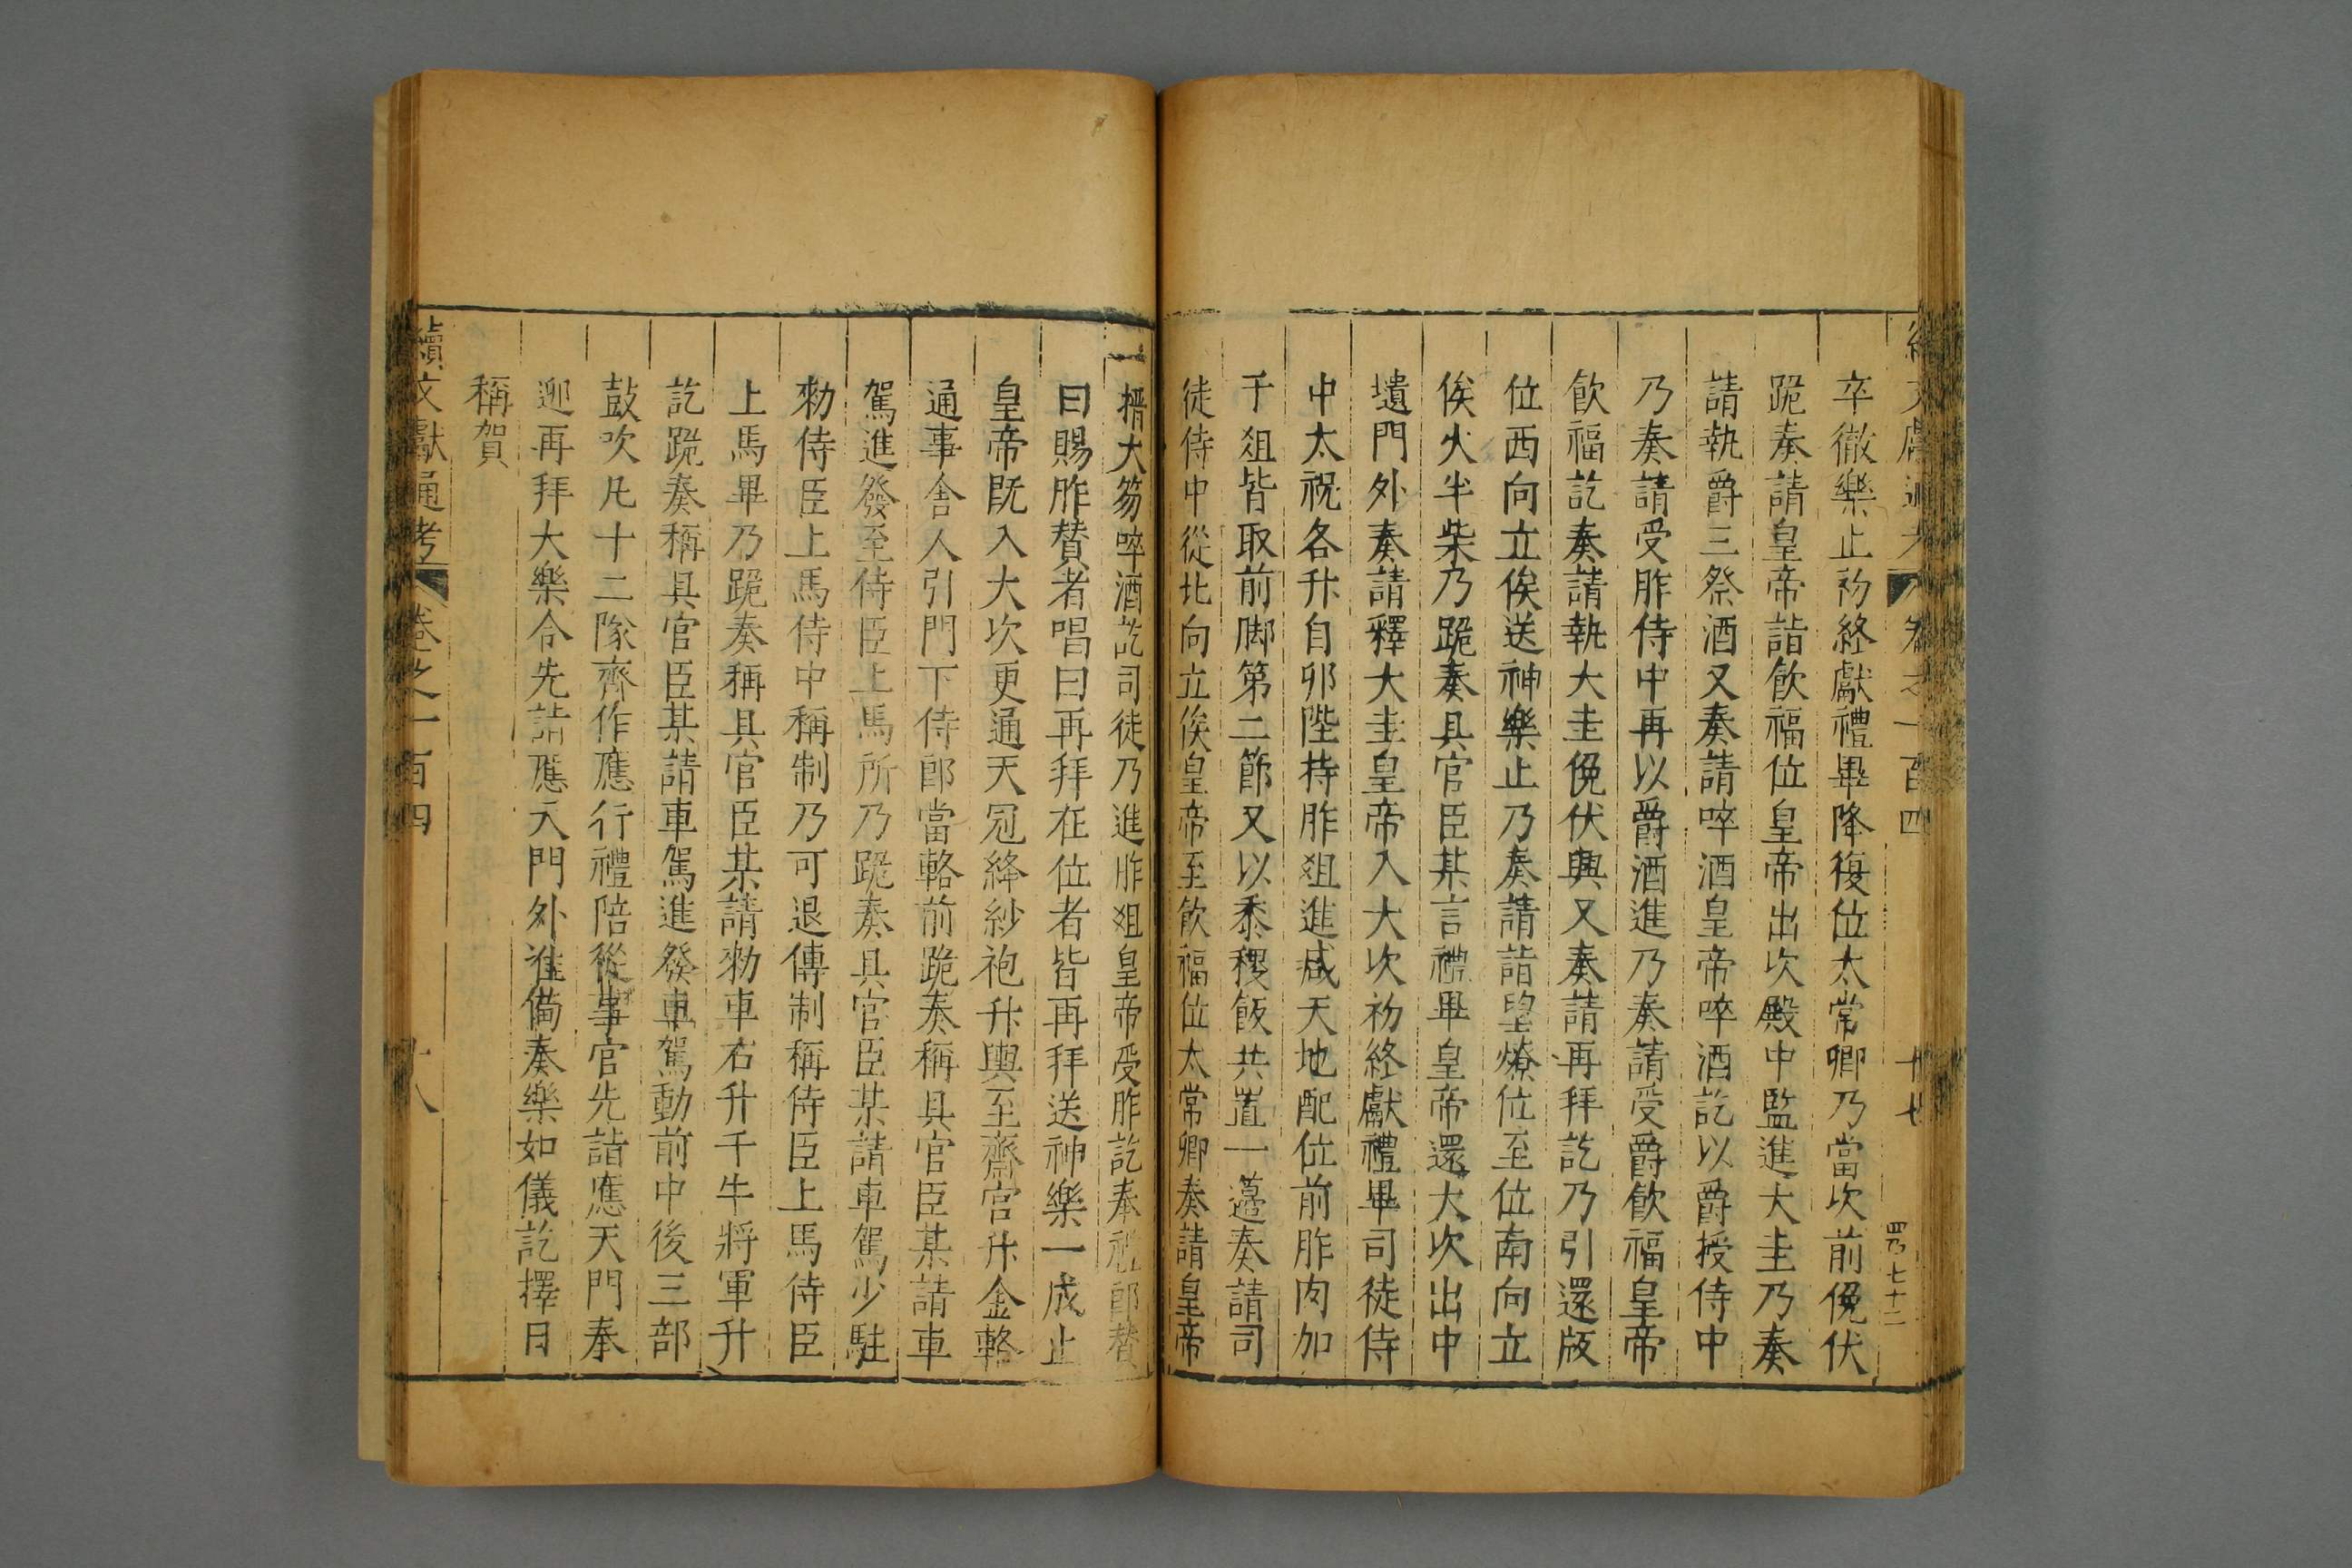 卷之一百四
十七
四乃七十二
卒徹樂止初終獻禮畢降復位太常卿乃當次前俛伏
跪奏請皇帝詣飲福位皇帝出次殿中監進大圭乃奏
請執爵三祭酒又奏請啐酒皇帝啐酒訖以爵授侍中
乃奏請受胙侍中再以爵酒進乃奏請受爵飲福皇帝
飲福訖奏請執大圭俛伏興又奏請再拜訖乃引還版
位西向立俟送神樂止乃奏請詣望燎位至位南向立
俟火半柴乃跪奏具官臣某言禮畢皇帝還大次出中
壝門外奏請釋大圭皇帝入大次初終獻禮畢司徒侍
中太祝各升自卯陛持胙俎進減天地配位前胙肉加
千俎皆取前脚第二節又以黍稷飯共置一籩奏請司
徒侍中從北向立俟皇帝至飲福位太常卿奏請皇帝
搢大笏啐酒訖司徒乃進胙俎皇帝受胙訖奉禮郎贊
曰賜胙贊者唱曰再拜在位者皆再拜送神樂一成止
皇帝既入大次更通天冠絳紗袍升輿至齋宮升金輅
通事舍人引門下侍郎當輅前跪奏稱具官臣某請車
駕進發至侍臣上馬所乃跪奏具官臣某請車駕少駐
勑侍臣上馬侍中稱制乃可退傳制稱侍臣上馬侍臣
上馬畢乃跪奏稱具官臣某請勑車右升千牛將軍升
訖跪奏稱具官臣某請車駕進發車駕動前中後三部
鼓吹凡十二隊齊作應行禮陪從事官先詣應天門奉
迎再拜大樂令先詣應天門外準備奏樂如儀訖擇日
稱賀
續文獻通考
卷之一百四
十八